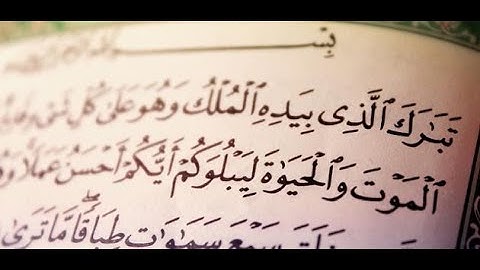 بِسْمِ
تَبَٰرَكَ ٱلَّذِى بِيَدِهِ ٱلْمُلْكُ وَهُوَ عَلَىٰ كُلِّ شَىْءٍ
ٱلْمَوْتَ وَٱلْحَيَوٰةَ لِيَبْلُوَكُمْ أَيُّكُمْ أَحْسَنُ عَمَلًا
خَلَقَ سَبْعَ سَمَٰوَٰتٍ طِبَاقًا مَّا تَرَىٰ